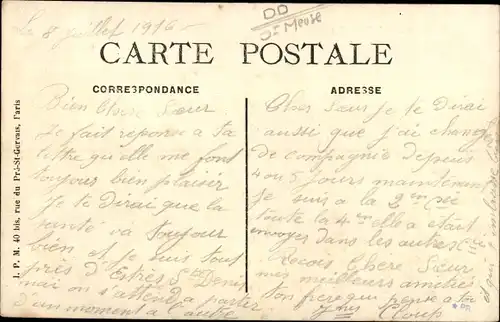 Le 8 juillet 1916
DD
St Meuse
CARTE POSTALE
CORRESPONDANCE
ADRESSE
J. P. M. 40 bis, rue du Pré-St-Gervais, Paris
Bien Chere Sœur
Je fait reponce a ta
lettre qu'elle me font
toujour bien plaisir
Je te Dirai que la
sante va toujour
bien et je suis tout
près d'Estrés St Denis
mai on s'attend a partir
D'un moment a l'autre
Cher Sœur Je te Dirai
aussi que j'ai change
de compagnie depuis
4 ou 5 jours maintenant
Je suis a la 2em cie
toute la 4em elle a était
envoyer dans les autres Cie
Recois Chere Sœur
mes meilleurs amitiés
ton frere qui pense a toi
Cloup
et qui